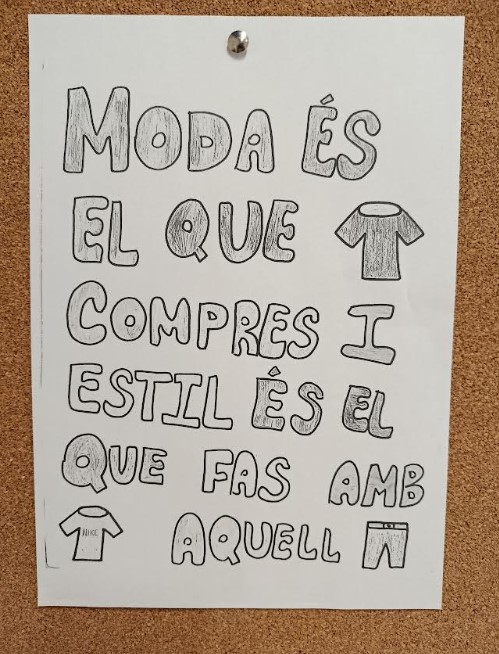 MODA ÉS
EL QUE
COMPRES I
ESTIL ÉS EL
QUE FAS AMB
NIKE
AQUELL